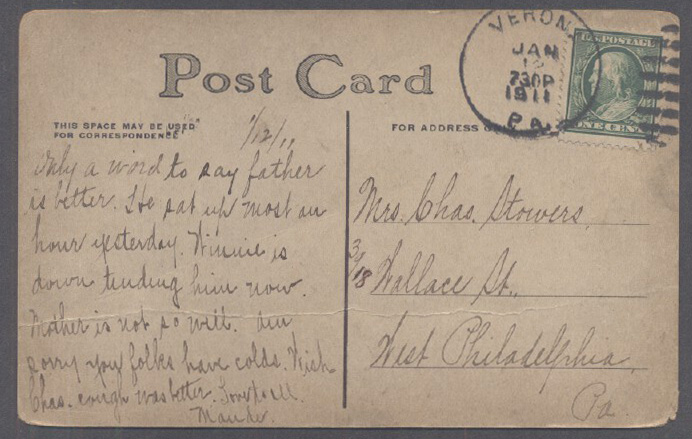 Post Card
THIS SPACE MAY BE USED
FOR CORRESPONDENCE
FOR ADDRESS
VERON
JAN
12
730P
1911
PA.
U.S. POSTAGE
ONE CENT
1/12/11
Only a word to say father
is better. He sat up most an
hour yesterday. Winnie is
down tending him now.
Mother is not so well. Am
sorry you folks have colds. Wish
Chas. cough was better. Love to all.
Maude.
Mrs. Chas. Stowers,
Wallace St.,
West Philadelphia,
Pa.